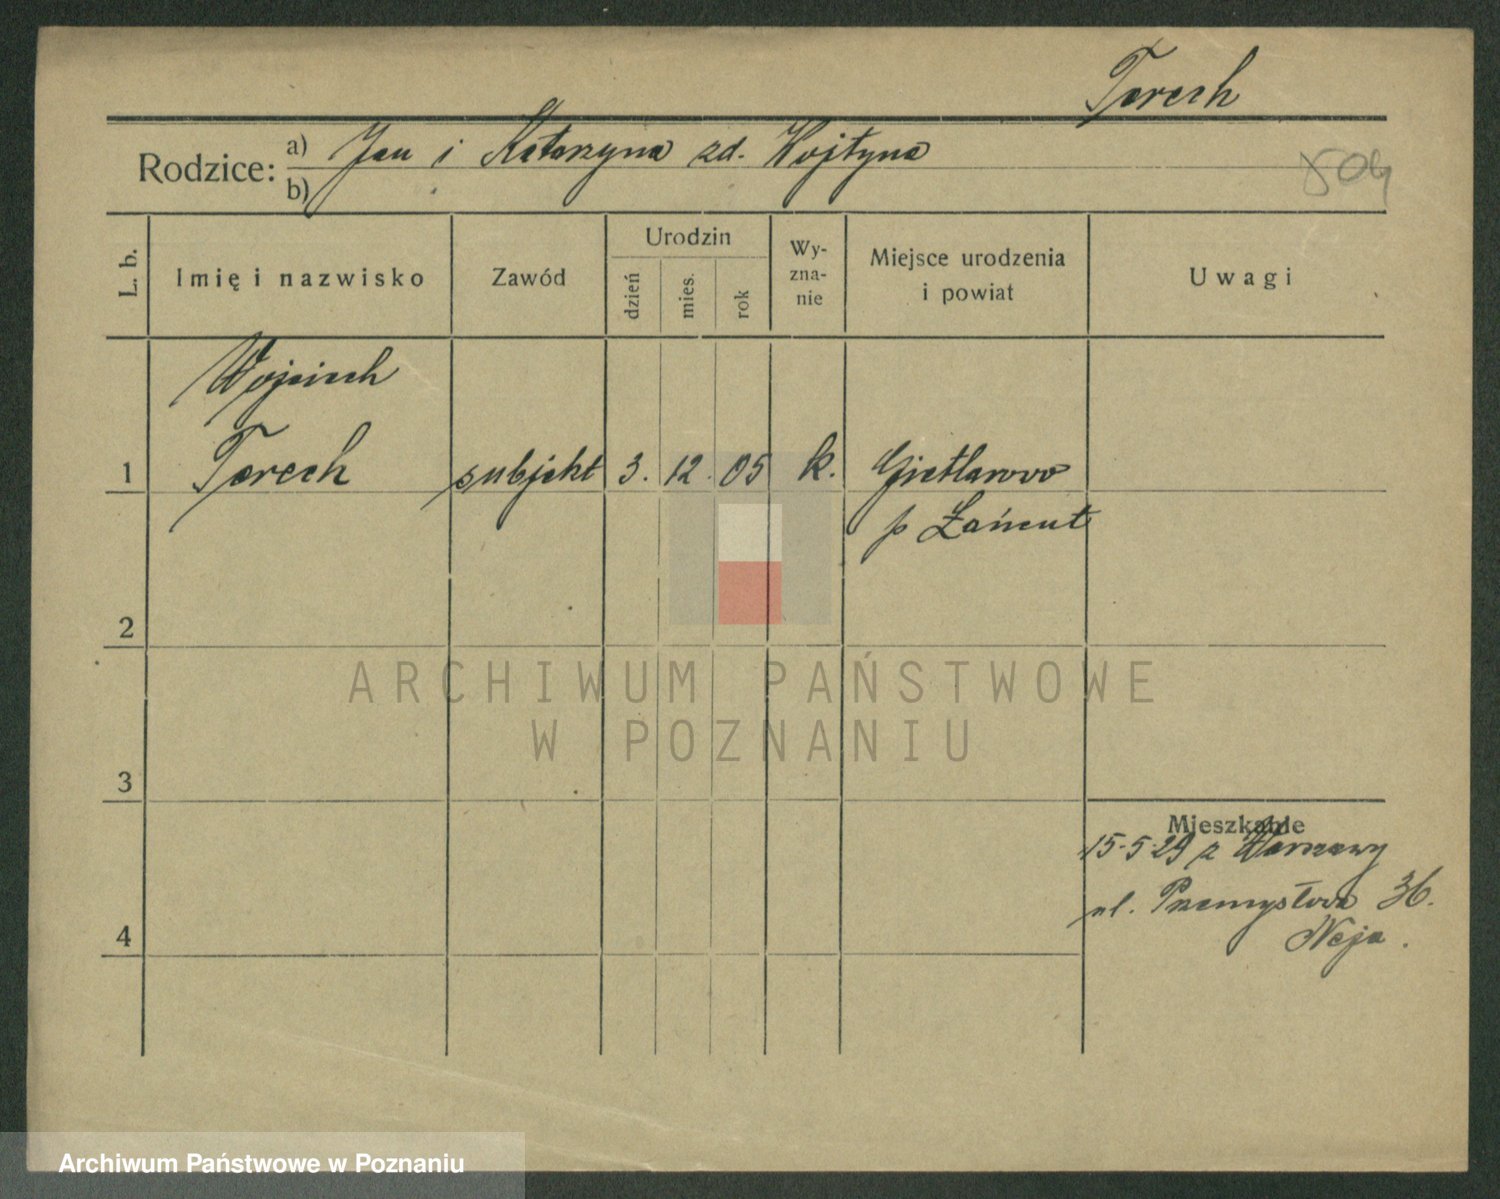 Terech
Rodzice: a) Jan i Katarzyna zd. Wojtyna
b)
504
L. b.
Imię i nazwisko
Zawód
Urodzin
dzień
mies.
rok
Wy-
zna-
nie
Miejsce urodzenia
i powiat
Uwagi
Wojciech
1 Terech subjekt 3. 12. 05 k. Gietlarowo
p Łańcut
2
3
Mieszkanie
15-5-29 z Warszawy
ul. Przemysłowa 36.
4
ARCHIWUM PAŃSTWOWE
W POZNANIU
Archiwum Państwowe w Poznaniu